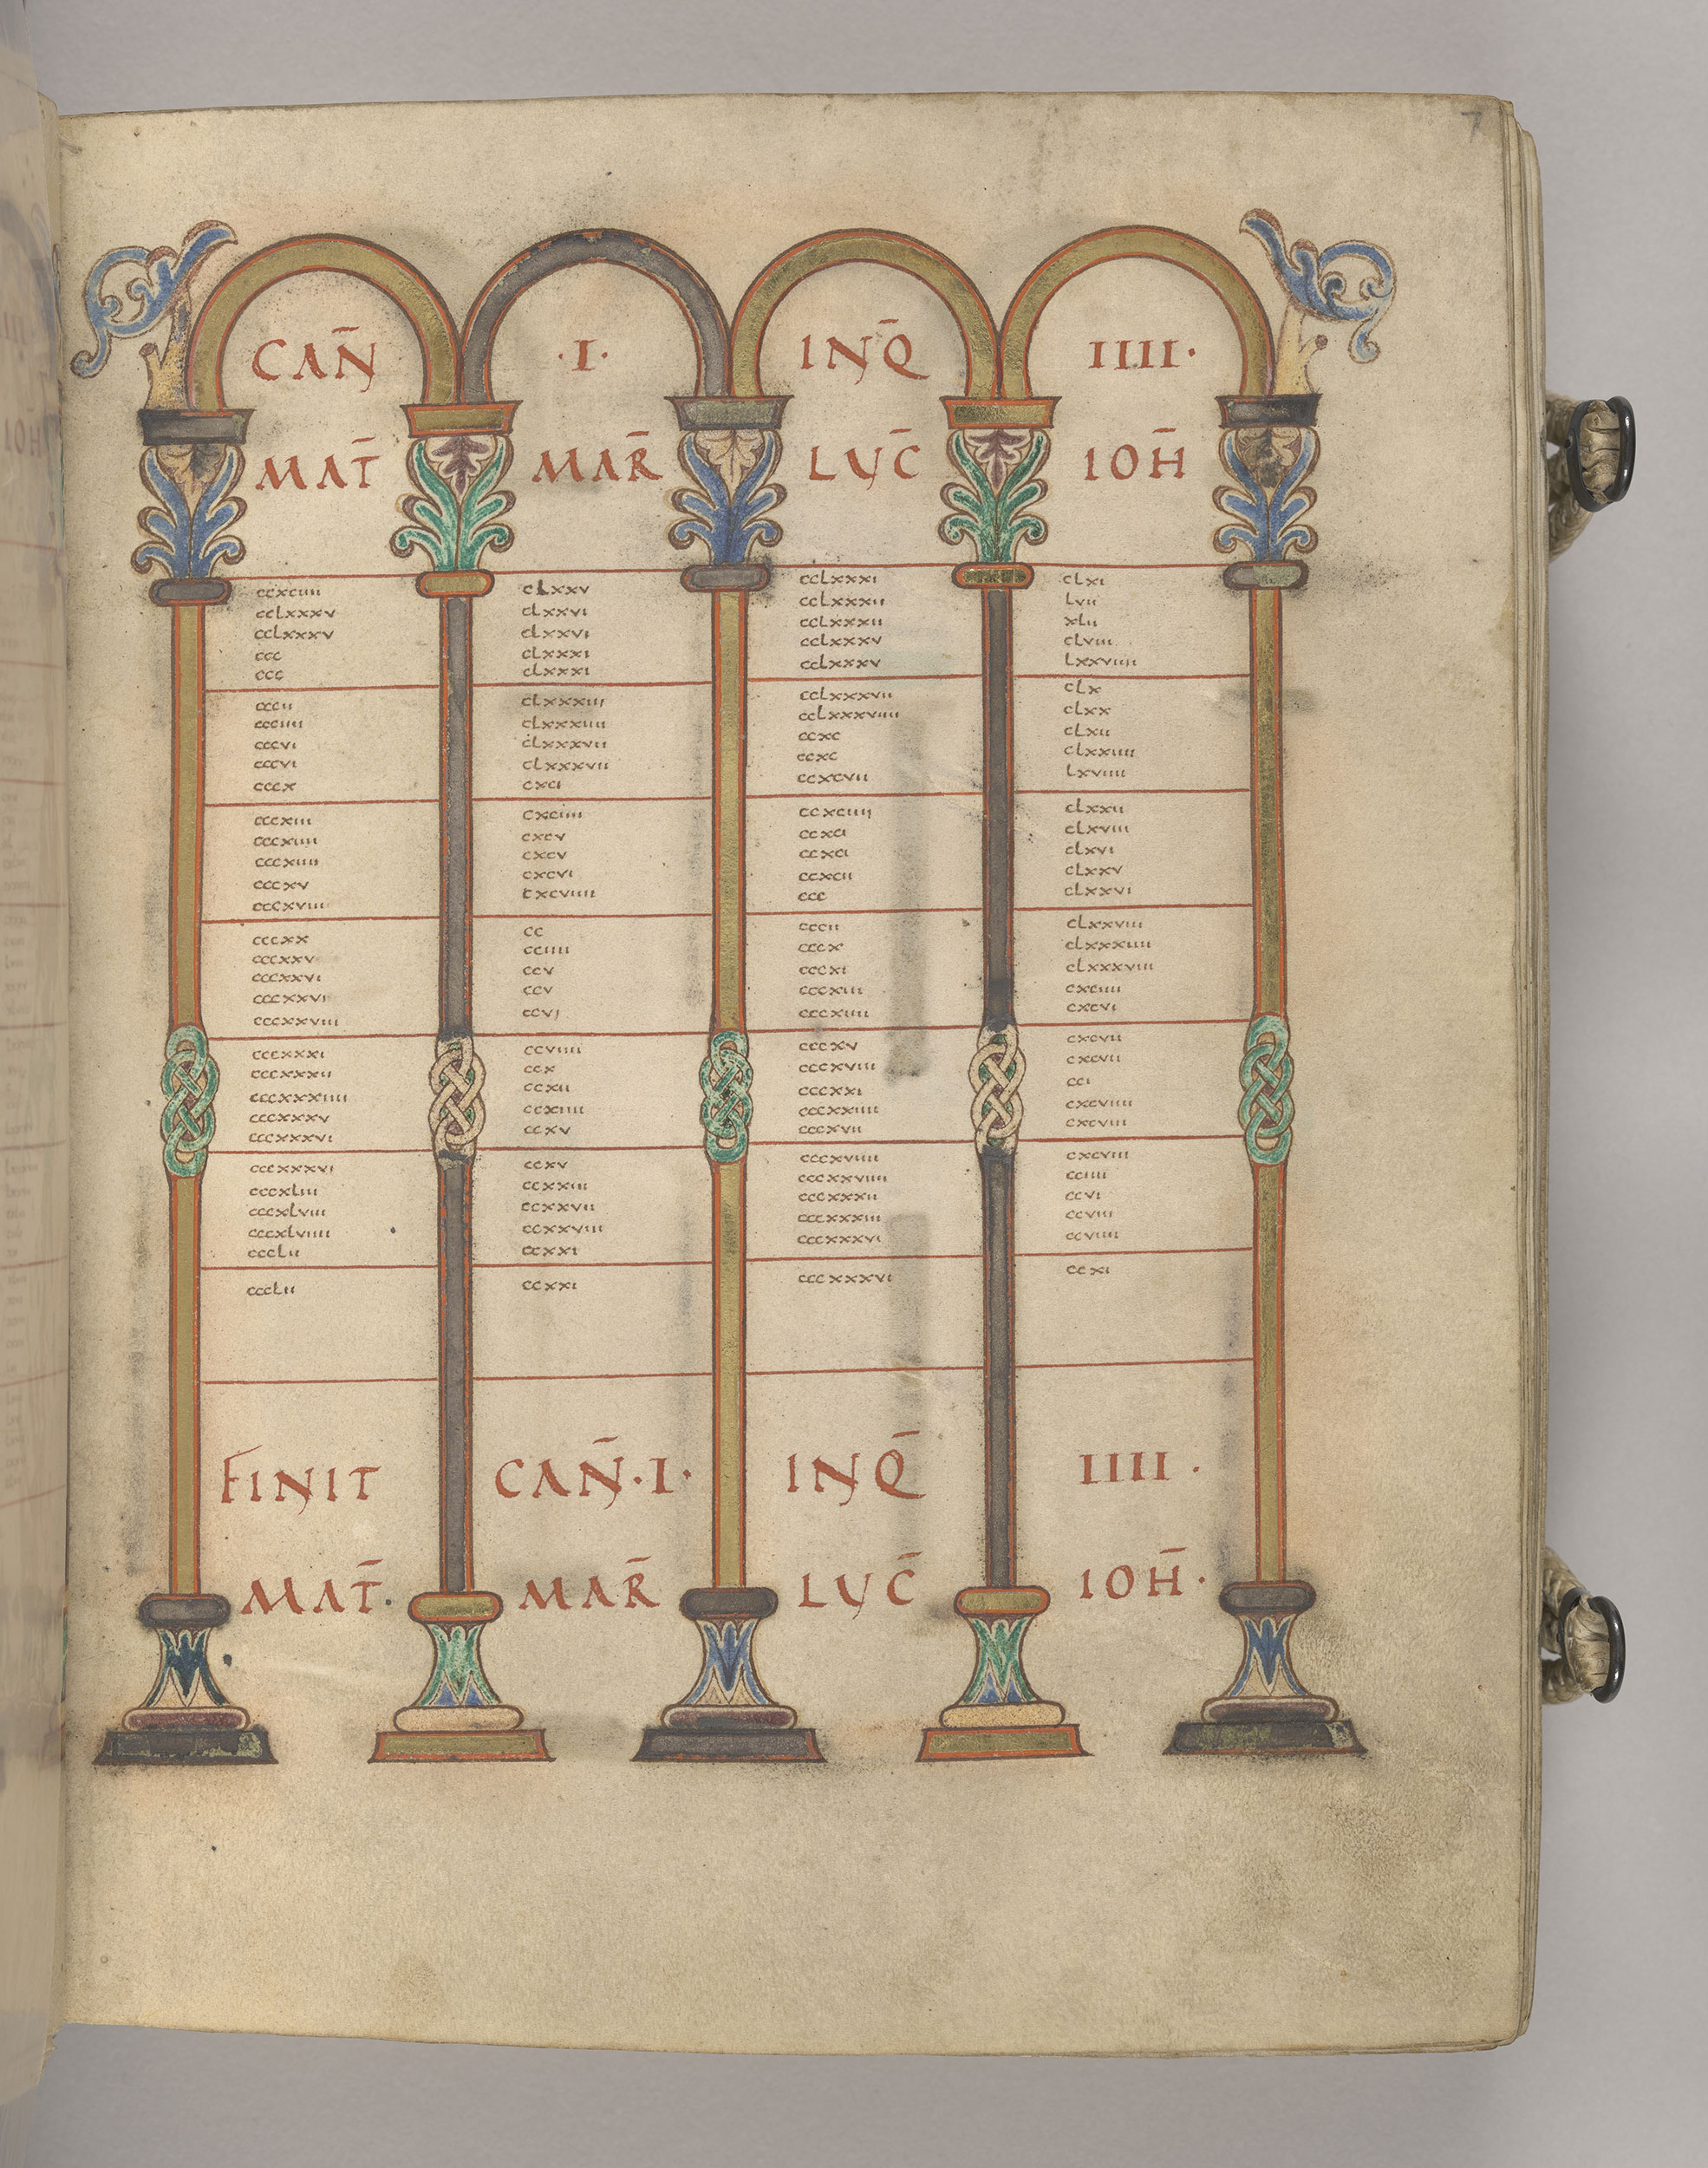 7
CAN̄ ·I· INQ̄ IIII·
MAT̄ MAR̄ LUC̄ IOH̄
ccxciiii clxxv cclxxxi clxi
cclxxxv clxxvi cclxxxii lvii
cclxxxv clxxvi cclxxxii xlii
ccc clxxxi cclxxxv clviii
ccc clxxxi cclxxxv lxxviiii
cccii clxxxiii cclxxxvii clx
ccciiii clxxxiiii cclxxxviiii clxx
cccvi clxxxvii ccxc clxii
cccvi clxxxvii ccxc clxxiiii
cccx cxci ccxcvii lxviiii
cccxiii cxciiii ccxciiii clxxii
cccxiiii cxcv ccxci clxviii
cccxiiii cxcv ccxci clxvi
cccxv cxcvi ccxcii clxxv
cccxviii cxcviiii ccc clxxvi
cccxx cc cccii clxxviii
cccxxv cciiii cccx clxxxiiii
cccxxvi ccv cccxi clxxxviii
cccxxvi ccv cccxiii cxciiii
cccxxviii ccvi cccxiiii cxcvi
cccxxxi ccviiii cccxv cxcvii
cccxxxii ccx cccxviii cxcvii
cccxxxiiii ccxii cccxxi cci
cccxxxv ccxiiii cccxxiiii cxcviiii
cccxxxvi ccxv cccxvii cxcviii
cccxxxvi ccxv cccxviiii cxcviii
cccxliii ccxxiii cccxxviiii cciiii
cccxlviii ccxxvii cccxxxii ccvi
cccxlviiii ccxxviiii cccxxxiii ccviii
ccclii ccxxi cccxxxvi ccviiii
ccclii ccxxi cccxxxvi ccxi
FINIT CAN̄·I· INQ̄ IIII·
MAT̄· MAR̄ LUC̄ IOH̄·